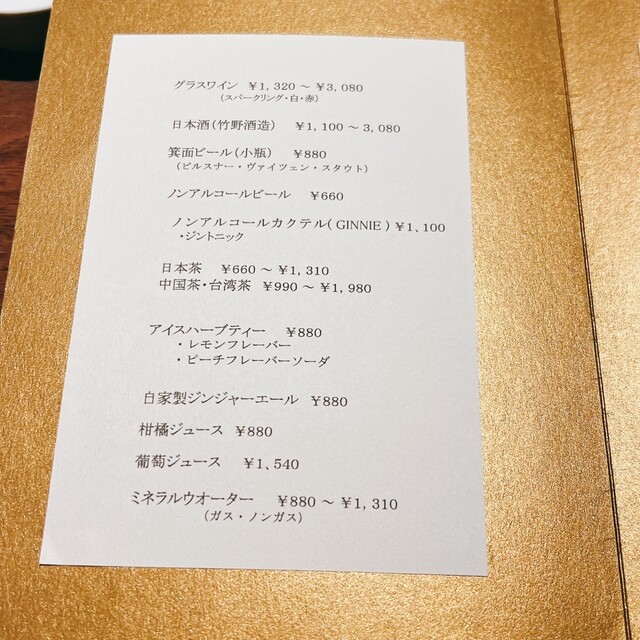 グラスワイン ¥1,320～¥3,080
(スパークリング・白・赤)
日本酒(竹野酒造) ¥1,100～3,080
箕面ビール(小瓶) ¥880
(ピルスナー・ヴァイツェン・スタウト)
ノンアルコールビール ¥660
ノンアルコールカクテル(GINNIE)¥1,100
・ジントニック
日本茶 ¥660～¥1,310
中国茶・台湾茶 ¥990～¥1,980
アイスハーブティー ¥880
・レモンフレーバー
・ピーチフレーバーソーダ
自家製ジンジャーエール ¥880
柑橘ジュース ¥880
葡萄ジュース ¥1,540
ミネラルウオーター ¥880～¥1,310
(ガス・ノンガス)